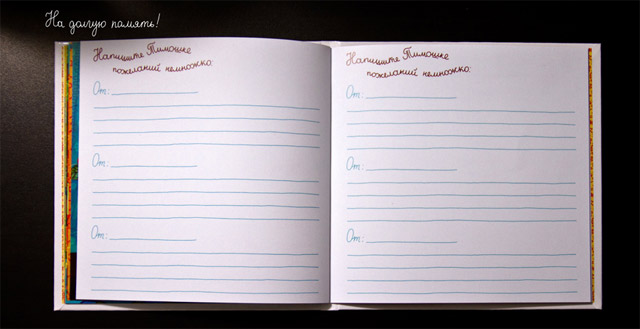 На долгую память!
Напишите Тимошке
пожеланий немножко:
От:
От:
От:
Напишите Тимошке
пожеланий немножко:
От:
От:
От: